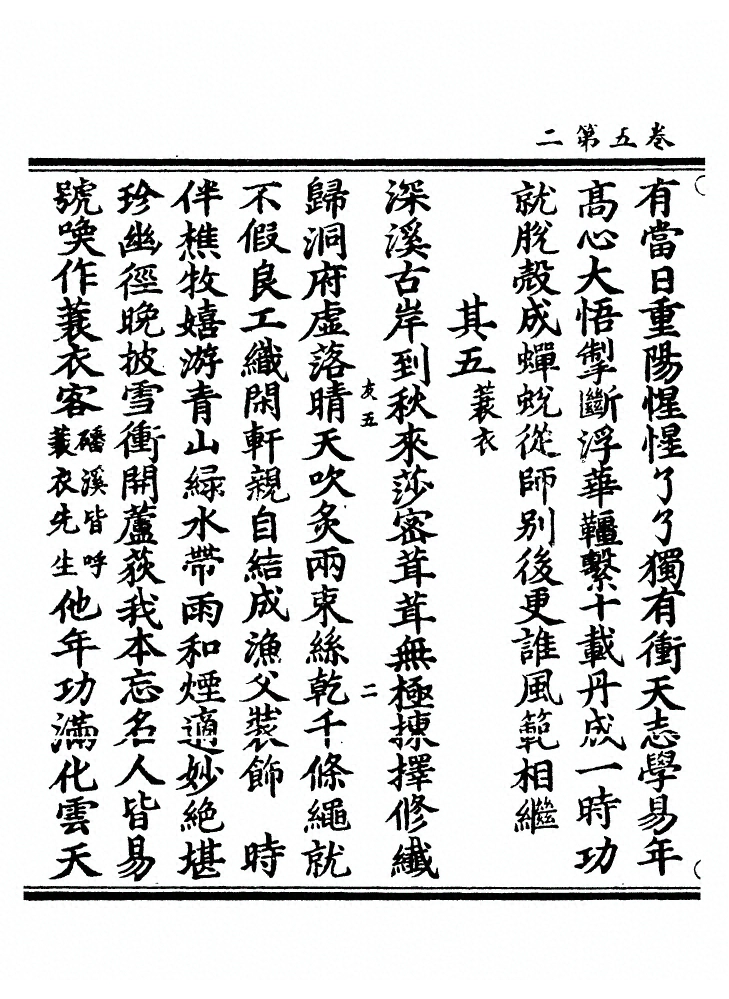 卷五第二
有當日重陽惺惺了了獨有衝天志學易年
髙心大悟掣斷浮華韁繫十載丹成一時功
就脫殻成蟬蛻從師別後更誰風範相繼
其五蓑衣
深溪古岸到秋來莎密茸茸無極揀擇修纖
友五
二
歸洞府虛落晴天吹炙兩束絲乾千條繩就
不假良工織閑軒親自結成漁父裝飾　時
伴樵牧嬉游青山緑水帶雨和煙適妙絕堪
珍幽徑晚披雪衝開蘆荻我本忘名人皆易
號喚作蓑衣客磻溪皆呼蓑衣先生他年功滿化雲天